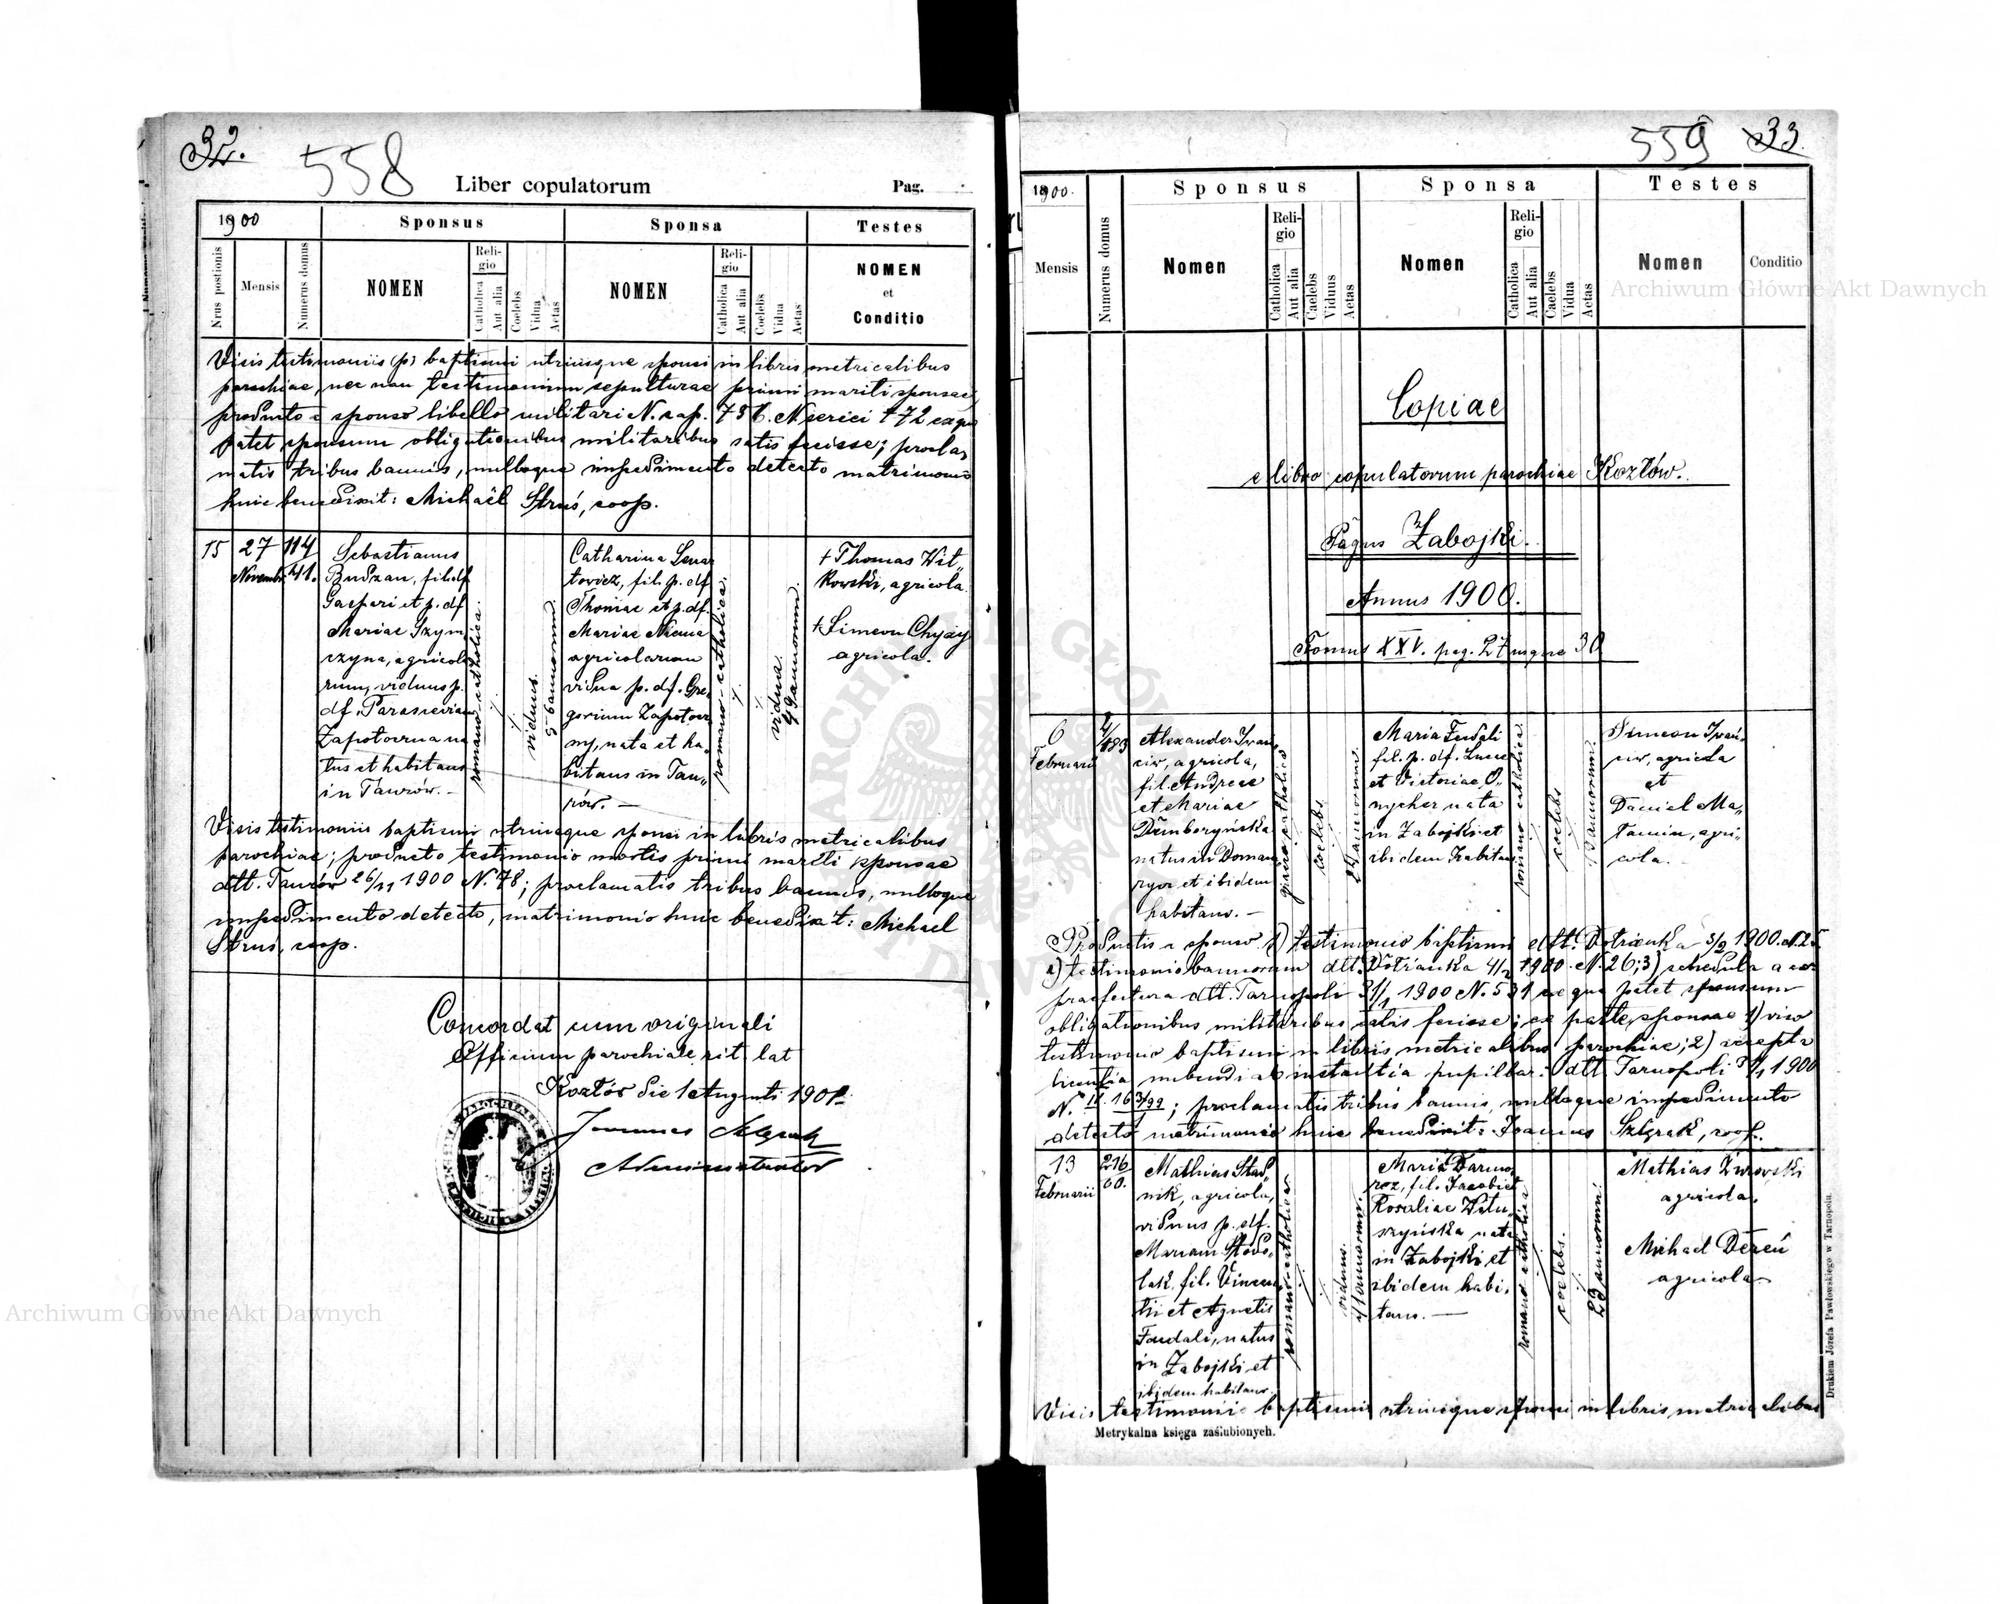 32.
558
Liber copulatorum
Pag.
1900
Sponsus
Sponsa
Testes
Nrus postionis
Mensis
Numerus domus
NOMEN
Religio
Catholica
Aut alia
Coelebs
Vidua
Aetas
NOMEN
Religio
Catholica
Aut alia
Coelebs
Vidua
Aetas
NOMEN
et
Conditio
Visis testimoniis (p) baptismi utriusque sponsi in libris metricalibus
parochiae, nec non testimonium sepulturae primi mariti sponsae,
producto a sponso libello militari N. cap. 736. N serici 772 ex quo
patet, sponsum obligationibus militaribus satis fecisse; procla-
matis tribus bannis, nulloque impedimento detecto matrimonio
huic benedixit: Michaël Struś, coop.
15
27
Novembr.
114
41.
Sebastianus
Budzan, fil. df.
Gasperi et p. df.
Mariae Szym
czyna, agricola
rum, viduus p.
df. Parasceviam
Zapotoczna na
tus et habitans
in Taurów. -
romano-catholica.
viduus.
5 annorum.
Catharina Lenar
towicz, fil. p. df
Thomae et p. df.
Mariae Niema
agricolarum
vidua p. df. Gre-
gorium Zapotocz
ny, nata et ha-
bitans in Tau-
rów. -
romano-catholica.
vidua.
49 annorum.
† Thomas Wit-
kowski, agricola.
† Simeon Chyży
agricola.
Visis testimoniis baptismi utriusque sponsi in libris metricalibus
parochiae; producto testimonio mortis primi mariti sponsae
dtt. Taurów 26/11 1900 N. 78; proclamatis tribus bannis, nulloque
impedimento detecto, matrimonio huic benedixit: Michael
Struś, coop.
Concordat cum originali
Officium parochiale rit. lat
Kozłów die 1 Augusti 1901.
Joannes
Administrator
559
33.
1900.
Sponsus
Sponsa
Testes
Mensis
Numerus domus
Nomen
Religio
Catholica
Aut alia
Caelebs
Viduus
Aetas
Nomen
Religio
Catholica
Aut alia
Caelebs
Vidua
Aetas
Nomen
Conditio
Copiae
e libro copulatorum parochiae Kozłów.
Pagus Zabojki.
Annus 1900.
Tomus XXV. pag. 27 usque 30
6
Februarii
183
Alexander Iwań
ciw, agricola,
fil. Andreae
et Mariae
Dżmboryńska
natus in Doman
rycz et ibidem
habitans. -
graeco-catholica
coelebs
24 annorum.
Maria Fendali
fil. p. df. Lucae
et Victoriae O-
nyszker nata
in Zabojki et
ibidem habitans
romano catholica
coelebs
annorum.
Simeon Iwań-
ciw, agricola
et
Daniel Ma-
tamin, agri-
cola.
Productis a sponso 1) testimonio baptismi dtt. Dołżanka 3/2 1900. N. 25
2) testimonio bannorum dtt. Dołżanka 4/2 1900. N. 26; 3) schedula a
praefectura dtt. Tarnopoli 31/1 1900 N. 531 ex qua patet sponsum
obligationibus militaribus satis fecisse; ex parte sponsae 1) viso
testimonio baptismi in libris metricalibus parochiae; 2) recepta
licentia nubendi ab instantia pupillari dtt. Tarnopoli 1900
N. 163/99; proclamatis tribus bannis, nulloque impedimento
detecto matrimonio huic benedixit: Joannes Szlęzak, coop.
13
Februarii
216
60.
Mathias Stad-
nik, agricola,
viduus p. df.
Mariam Stodo-
lak, fil. Vincen
tii et Agnetis
Fendali, natus
in Zabojki et
ibidem habitans.
romano-catholica
viduus.
41 annorum.
Maria Darmo
roz, fil. Jacobi et
Rosaliae Witu-
szyńska nata
in Zabojki et
ibidem habi-
tans. -
romano catholica
coelebs.
23 annorum.
Mathias Żurowski
agricola.
Michael Dereń
agricola
Visis testimoniis baptismi utriusque sponsi in libris metricalibus
Metrykalna księga zaślubionych.
Drukiem Józefa Pawłowskiego w Tarnopolu.
Archiwum Główne Akt Dawnych
Archiwum Główne Akt Dawnych